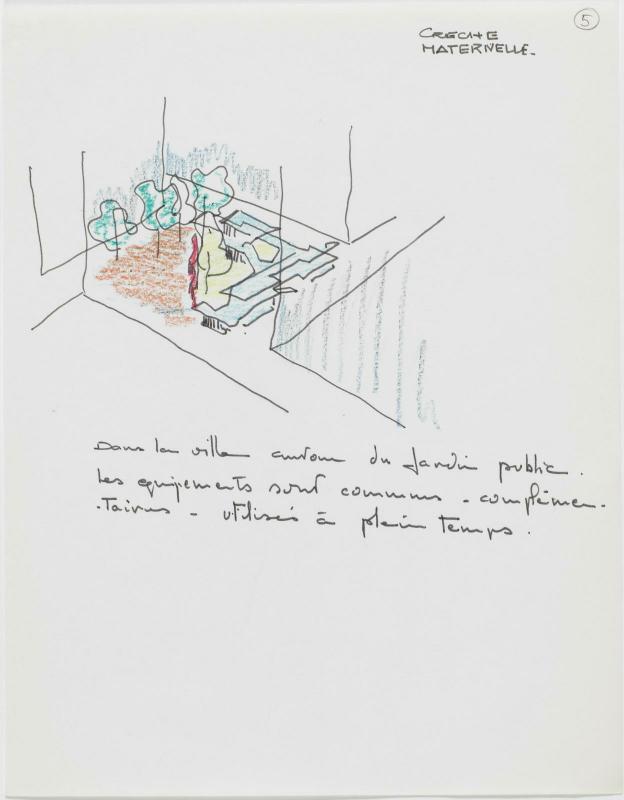 5
CRECHE
MATERNELLE.
Dans la ville autour du Jardin public.
Les equipements sont communs - complémen-
-taires - utilisés à plein temps.